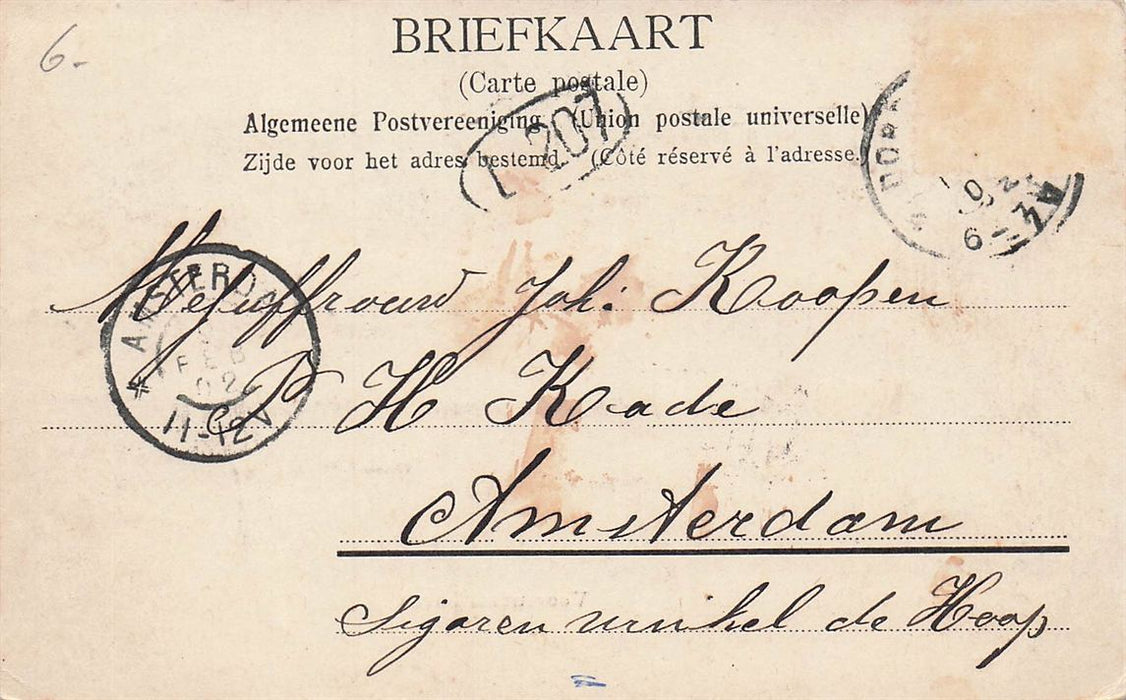 6.-
BRIEFKAART
(Carte postale)
Algemeene Postvereeniging (Union postale universelle)
Zijde voor het adres bestemd. (Côté réservé à l'adresse.)
207
DOR
6-7V
Mejuffrouw Joh: Koopen
AMSTERDA
FEB
02
11-12V
P H Kade
Amsterdam
Sigaren winkel de Hoop